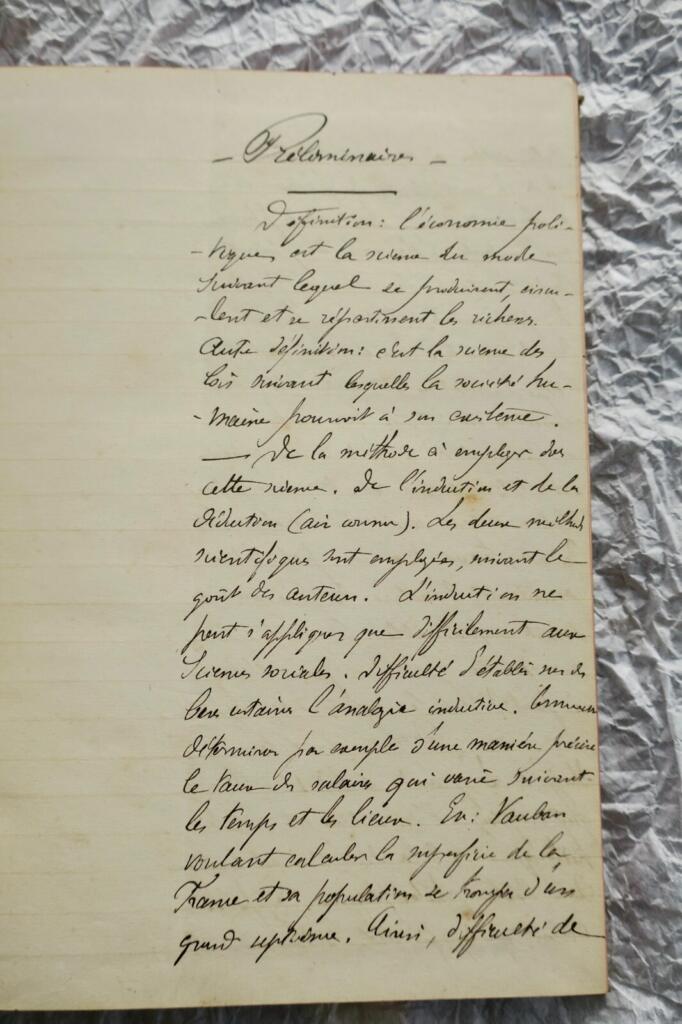 - Préliminaires -
Définition: l'économie poli-
-tique est la science du mode
suivant lequel se produisent, circu-
-lent et se répartissent les richesses.
Autre définition: c'est la science des
lois suivant lesquelles la société hu-
-maine pourvoit à son existence.
— De la méthode à employer dans
cette science. De l'induction et de la
déduction (air connu). Les deux méthodes
scientifiques sont employées, suivant le
goût des auteurs. L'induction ne
peut s'appliquer que difficilement aux
Sciences sociales. Difficulté d'établir sur des
bases certaines l'analogie inductive. Comment
déterminer par exemple d'une manière précise
le taux des salaires qui varie suivant
les temps et les lieux. Ex: Vauban
voulant calculer la superficie de la
France et sa population se trompa d'un
grand septième. Ainsi, difficulté de